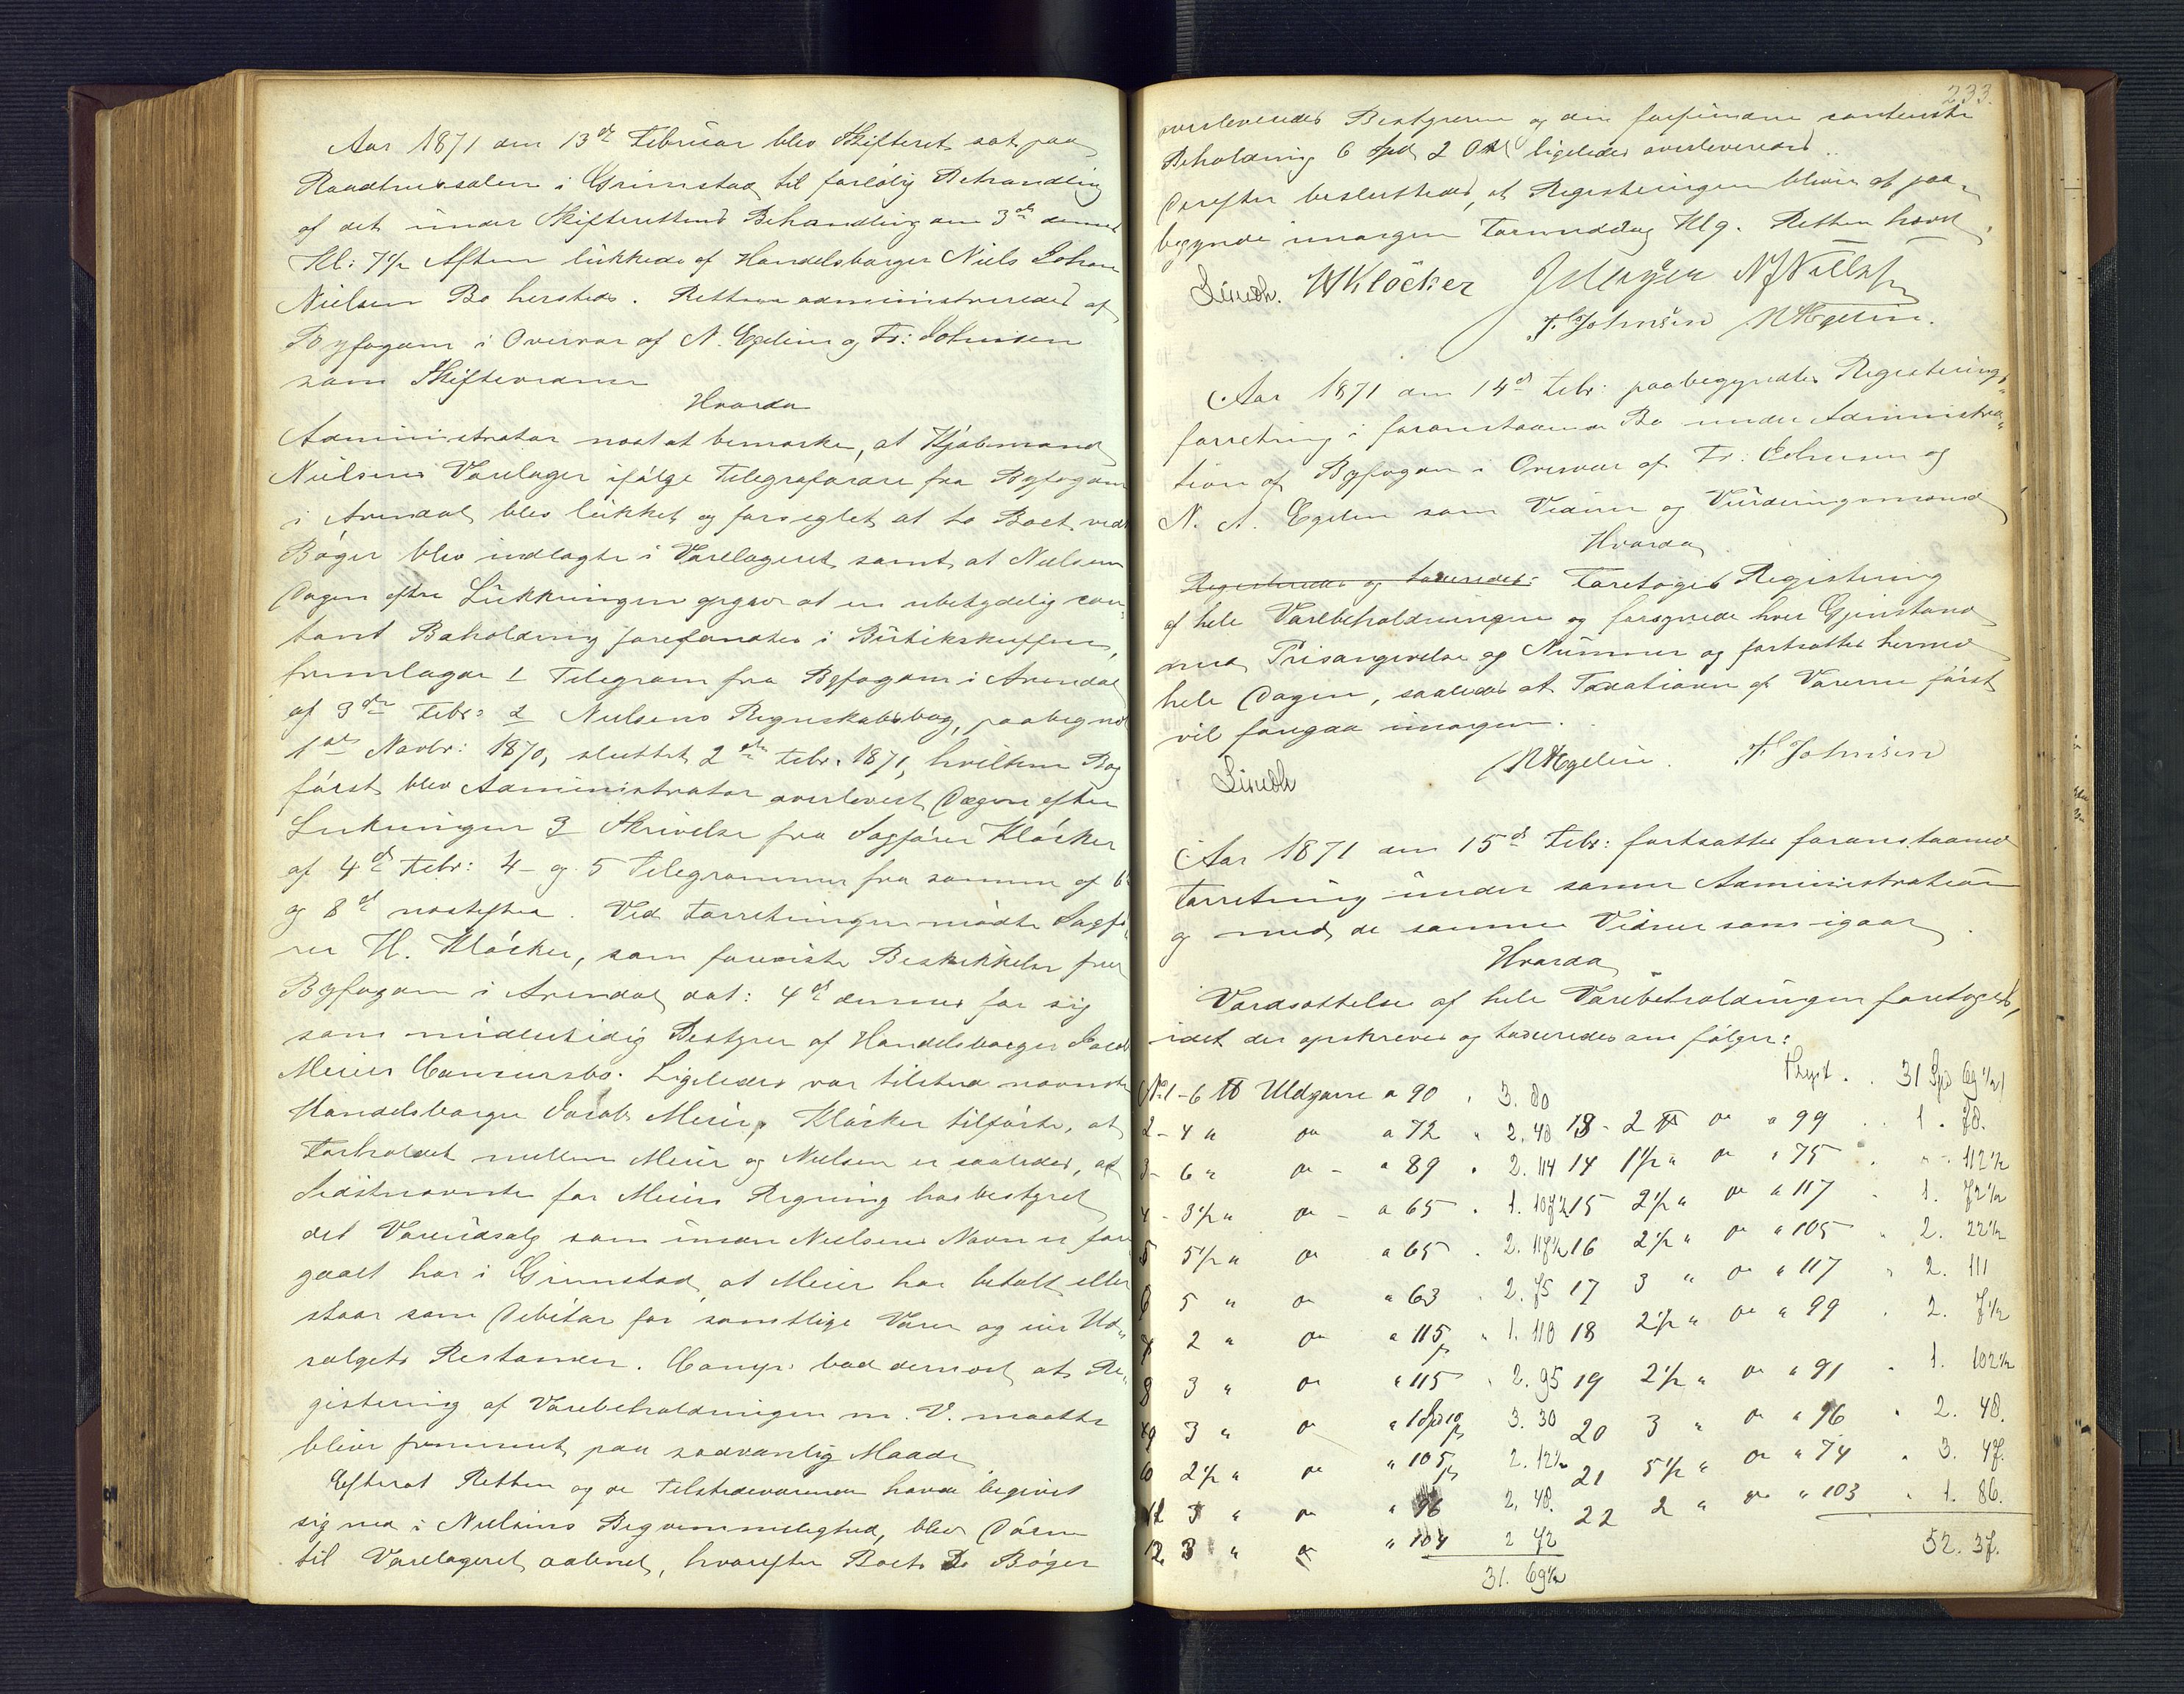 Aar 1871 den 13de Februar blev Skifteret sat paa
Raadhussalen i Grimstad til forløbig Behandling
af det under Skifterettens Behandling den 3de dennes
Kl: 7½ Aften lukkede af Handelsborger Niels Johan
Nielsen Bo hersteds. Retten administreredes af
Byfogden i Overvær af N. Egelin og Fr: Johnsen
som Skiftevidner
Hvorda
Administrator nest at bemærke, at Kjøbmand
Nielsens Varelager ifølge Telegrafordre fra Byfogden
i Arendal blev lukket og forseglet at to Boet vedk
Bøger blev indlagte i Varelageret samt at Nielsen
Dagen efter Lukkningen opgav at en ubetydelig con-
tant Beholdning forefandtes i Butikskuffen,
fremlagdes 1 Telegram fra Byfogden i Arendal
af 3die Febr: 2 Nielsens Regnskabsbog, paabegyndt
1ste Novbr: 1870, sluttet 2den Febr. 1871, hvilken Bog
først blev Administrator overlevert Dagen efter
Lukningen 3 Skrivelse fra Sagfører Kløcker
af 4de Febr: 4 - og 5 Telegrammer fra samme af 6te
og 8de næstefter. Ved Forretningen mødte Sagfø-
rer H. Kløcker, som foreviste Beskikkelse fra
Byfogden i Arendal dat: 4de dennes for sig
som midlertidig Bestyrer af Handelsborger Jacob
Meiers Concursbo. Ligeledes var tilstede nævnte
Handelsborger Jacob Meier. Kløcker tilførte, at
Forholdet mellem Meier og Nielsen er saaledes, at
Sidstnævnte for Meiers Regning har bestyret
det Vareudsalg som under Nielsens Navn er fore
gaaet her i Grimstad, at Meier har betalt eller
staar som Debitor for samtlige Varer og eier Ud-
salgets Restancer. Comp: bad dernæst at Re-
gistering af Varebeholdningen m. V. maatte
blive fremmet paa sædvanlig Maade
Efterat Retten og de Tilstedeværende havde begivet
sig ned i Nielsens Beqvemmelighed, blev Døren
til Varelageret aabnet, hvorefter Boets 2 Bøger
233.
overleveredes Bestyreren og den forefundne contante
Beholdning 6 Spd 2 Ort ligeledes overleveredes.
Derefter besluttedes, at Registeringen bliver at paa-
begynde imorgen Formiddag Kl 9. Retten hævet.
Smith. H Kløcker J Meyer N J Nielsen
Fr Johnsen N A Egelin.
Aar 1871 den 14de Febr: paabegyndtes Registerings-
forretning i foranstaaende Bo under Administra-
tion af Byfogden i Overvær af Fr: Johnsen og
N. A. Egelin som Vidner og Vurderingsmænd
Hvorda
Registreredes og taxeredes: Foretoges Registering
af hele Varebeholdningen og forsynede hver Gjenstand
med Prisangivelse og Nummer og fortsattes hermed
hele Dagen, saaledes at Taxationen af Varerne først
vil foregaa imorgen.
Smith N A Egelin. Fr Johnsen
Aar 1871 den 15de Febr: fortsattes foranstaaende
Forretning under samme Administration
og med de samme Vidner som igaar
Hvorda
Værdsættelse af hele Varebeholdningen foretoges,
idet der opskreves og taxeredes som følger:
Transpt. . . 31 Spd 69½ s
No 1 - 6 ℔ Uldgarn a 90 . 3. 80
2 - 4 " do a 72 " 2. 48 13 - 2 ℔ do a 99 . . 1. 78.
3 - 6 " do - a 89 . 2. 114 14 1½ " do a 75 . " - 112½
4 - 3½ " do - a 65 . 1. 107½ 15 2½ " do a 117 . 1. 72½
5 5½ " do a 65 . 2. 117½ 16 2½ " do a 105 " 2. 22½
6 5 " do a 63 . 2. 75 17 3 " do a 117 " 2. 111
7 2 " do a 115 " 1. 110 18 2½ " do a 99 . 2. 7½
8 3 " do a 115 . 2. 95 19 2½ " do a 91 . 1. 102½
9 3 " do a 1 Spd 10 3. 30 20 3 " do a 96 . 2. 48.
10 2½ " do a 105 2. 12½ 21 5½ " do a 74 . 3. 47.
11 3 " do a 96 2. 48. 22 2 " do a 103 . 1. 86.
12 3 " do a 104 2 72 52. 37.
31. 69½